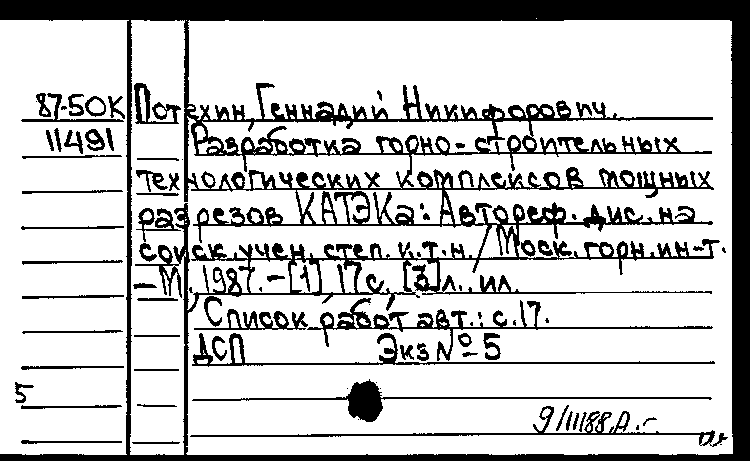 87-5OK Потехин, Геннадий Никифорович.
11491 Разработка горно-строительных
технологических комплексов мощных
разрезов КАТЭКа: Автореф. дис. на
соиск. учен. степ. к.т.н. / Моск. горн. ин-т.
– М., 1987. – [1], 17 с. [3] л., ил.
Список работ авт.: с. 17.
ДСП Экз № 5
5
9/III88